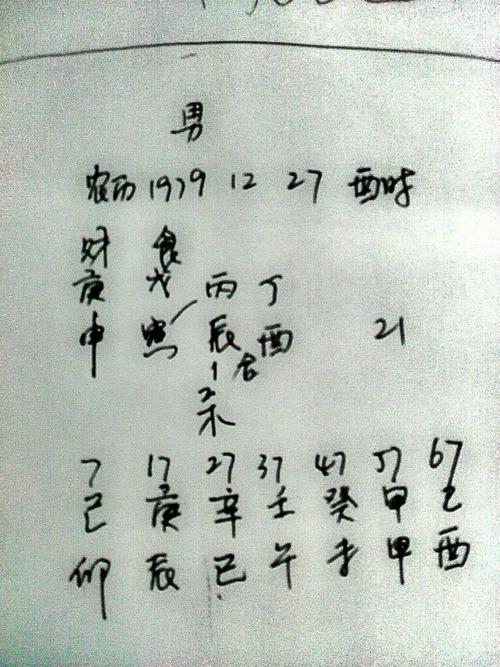 男
农历 1979 12 27 酉时
财 食
庚 戊 丙 丁
申 寅 辰 酉 21
合
7 17 27 37 47 57 67
己 庚 辛 壬 癸 甲 乙
卯 辰 巳 午 未 申 酉